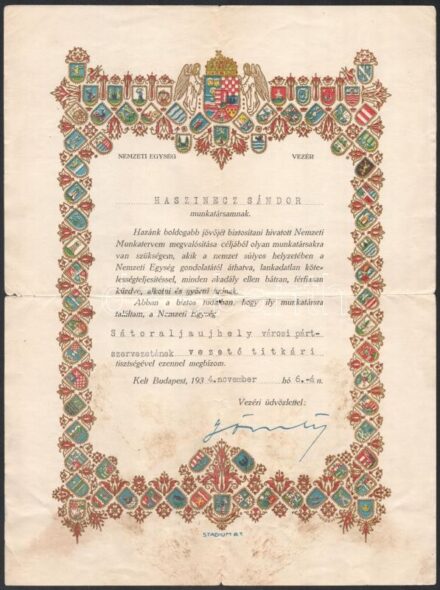 NEMZETI EGYSÉG VEZÉR
HASZINECZ SÁNDOR
munkatársamnak.
Hazánk boldogabb jövőjét biztosítani hivatott Nemzeti
Munkatervem megvalósítása céljából olyan munkatársakra
van szükségem, akik a nemzet súlyos helyzetében a
Nemzeti Egység gondolatától áthatva, lankadatlan köte-
lességteljesítéssel, minden akadály ellen bátran, férfiasan
küzdve, alkotni és győzni tudnak.
Abban a biztos tudatban, hogy ily munkatársra
találtam, a Nemzeti Egység
Sátoraljaujhely városi párt-
szervezetének vezető titkári
tisztségével ezennel megbízom.
Kelt Budapest, 1934.november hó 6.-án.
Vezéri üdvözlettel:
Gömbös
STADIUM RT.